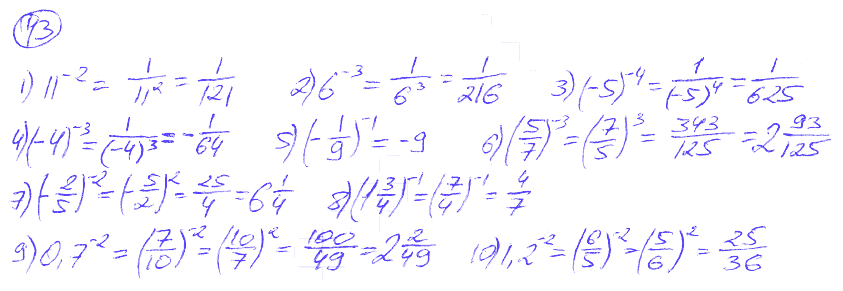 43
1) 11⁻² = 1/11² = 1/121 2) 6⁻³ = 1/6³ = 1/216 3) (-5)⁻⁴ = 1/(-5)⁴ = 1/625
4) (-4)⁻³ = 1/(-4)³ = -1/64 5) (-1/9)⁻¹ = -9 6) (5/7)⁻³ = (7/5)³ = 343/125 = 2 93/125
7) (-2/5)⁻² = (-5/2)² = 25/4 = 6 1/4 8) (1 3/4)⁻¹ = (7/4)⁻¹ = 4/7
9) 0,7⁻² = (7/10)⁻² = (10/7)² = 100/49 = 2 2/49 10) 1,2⁻² = (6/5)⁻² = (5/6)² = 25/36